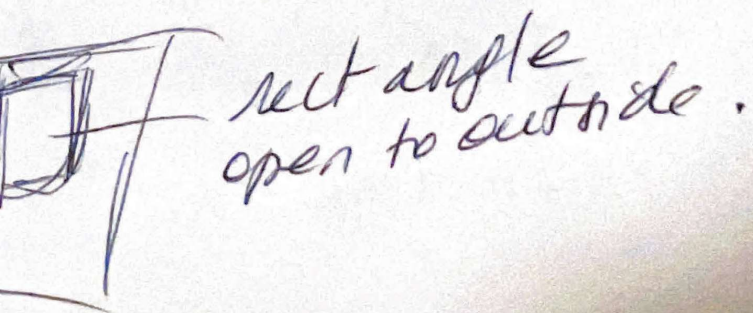 rectangle
open to outside.